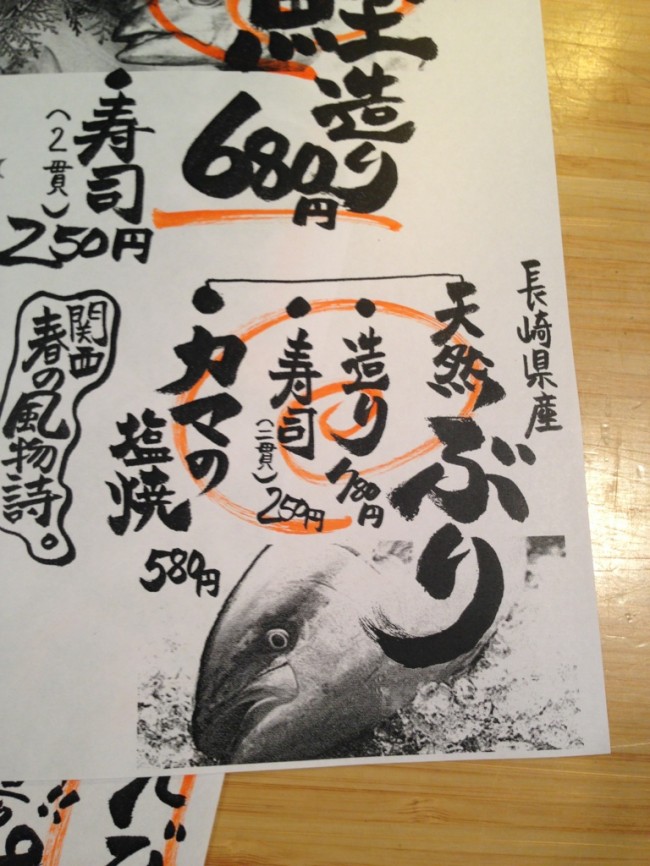 鮭
造り
680円
寿司
(2貫)
250円
長崎県産
天然ぶり
造り
780円
寿司
(二貫)
250円
カマの
塩焼
580円
関西
春の風物詩。